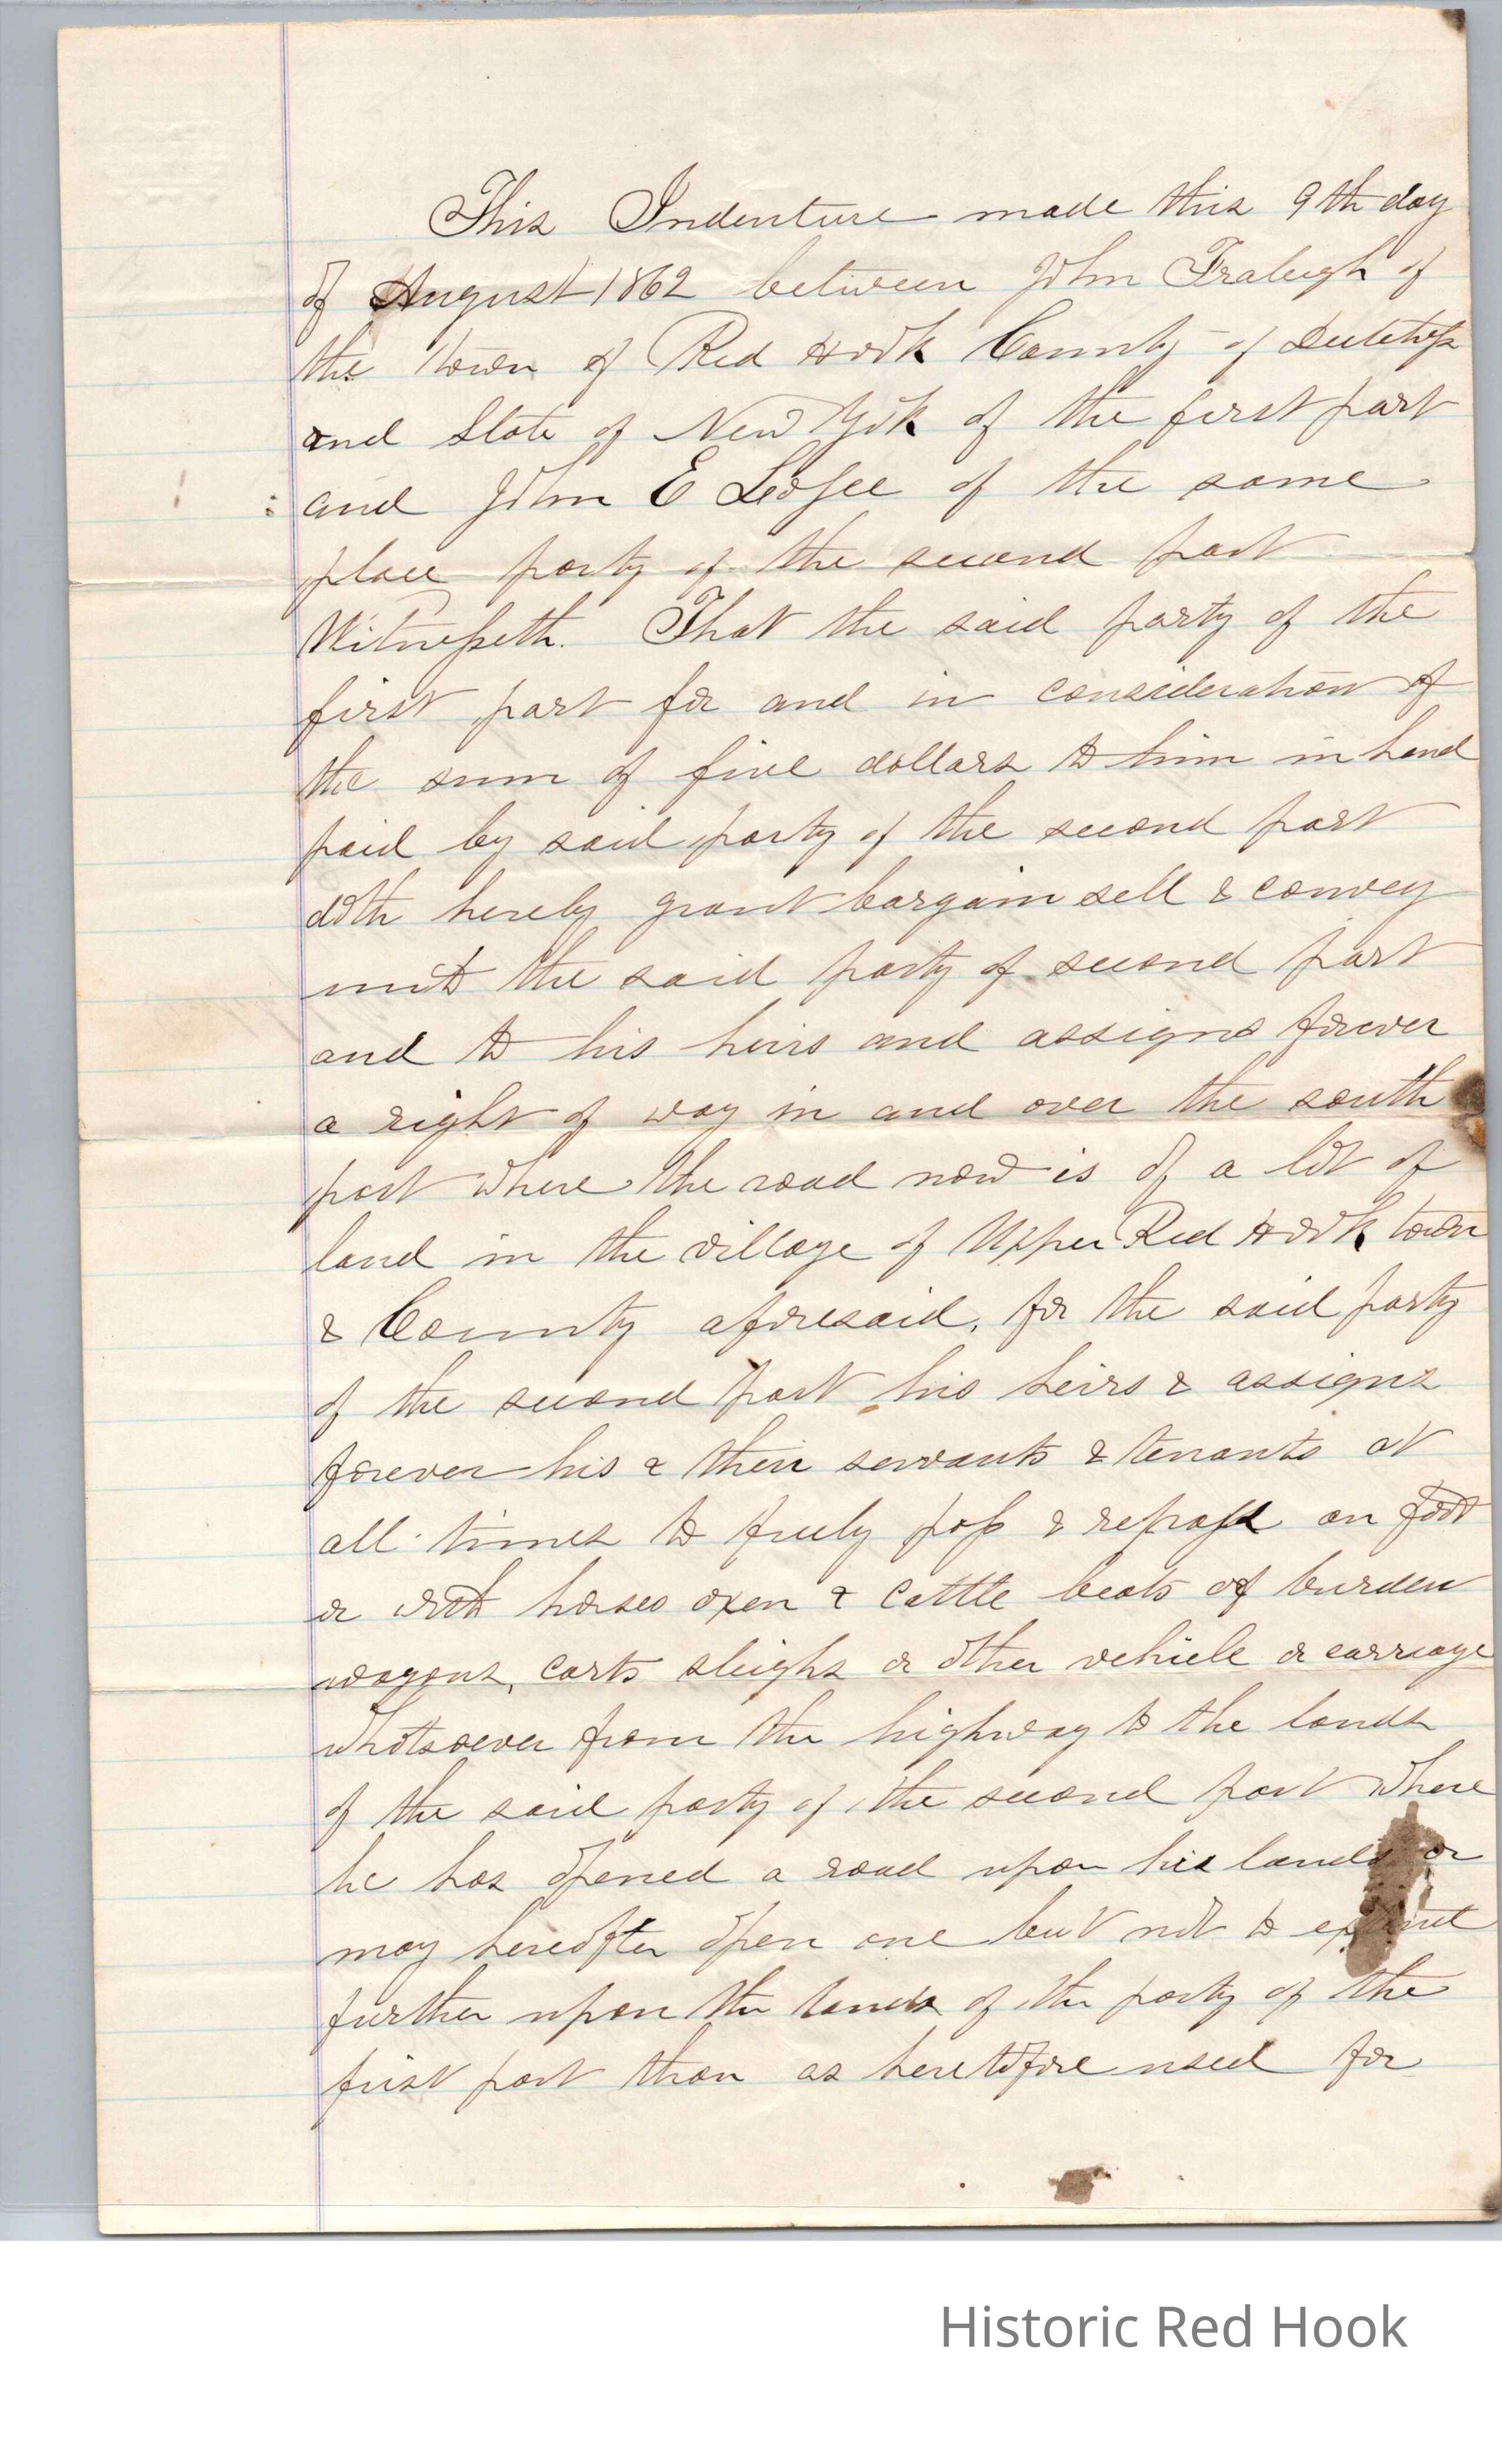 This Indenture made this 9th day
of August 1862 between John Fraleigh of
the town of Red Hook County of Dutchess
and State of New York of the first part
and John E Losee of the same
place party of the second part
Witnesseth. That the said party of the
first part for and in consideration of
the sum of five dollars to him in hand
paid by said party of the second part
doth hereby grant bargain sell & convey
unto the said party of second part
and to his heirs and assigns forever
a right of way in and over the south
part where the road now is of a lot of
land in the village of Upper Red Hook town
& County aforesaid, for the said party
of the second part his heirs & assigns
forever his & their servants & tenants at
all times to freely pass & repass on foot
or with horses oxen & cattle beats of burden
wagons, carts sleighs or other vehicle or carriage
whatsoever from the highway to the lands
of the said party of the second part where
he has opened a road upon his lands or
may hereafter open one but not to
further upon the lands of the party of the
first part than as heretofore used for
Historic Red Hook